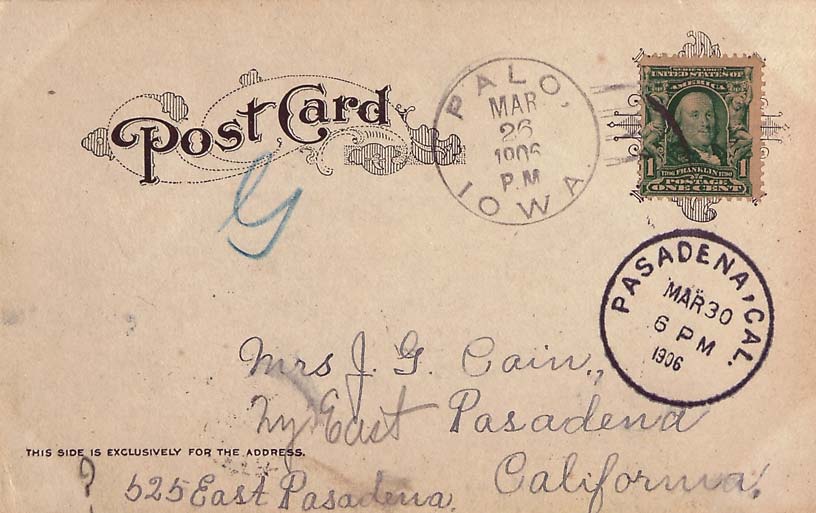 Post Card
PALO,
MAR
26
1906
P.M
IOWA
SERIES 1902
UNITED STATES OF
AMERICA
1 1706 FRANKLIN 1790 1
POSTAGE
ONE CENT
G
PASADENA, CAL.
MAR 30
6 PM
1906
Mrs J. G. Cain.,
East Pasadena
THIS SIDE IS EXCLUSIVELY FOR THE ADDRESS.
California.
? 525 East Pasadena.